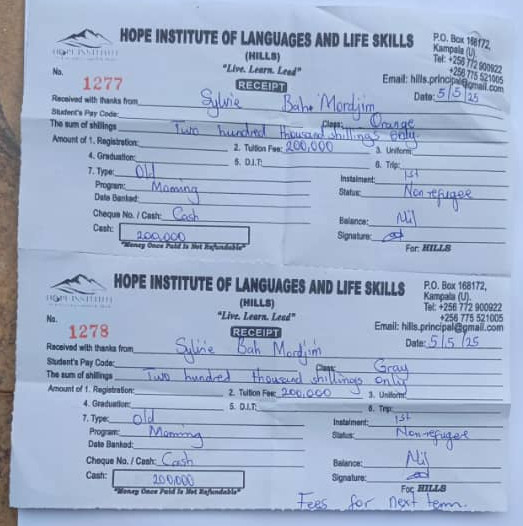 HOPE INSTITUTE OF LANGUAGES AND LIFE SKILLS
(HILLS)
"Live. Learn. Lead"
P.O. Box 168172,
Kampala (U).
Tel: +256 772 900922
+256 775 521005
Email: hills.principal@gmail.com
HOPE INSTITUTE
No. 1277
RECEIPT
Date: 5/5/25
Received with thanks from Sylvie Bah Mordjim
Student's Pay Code: Class: Orange
The sum of shillings Two hundred thousand shillings only.
Amount of 1. Registration: 2. Tuition Fee: 200,000 3. Uniform:
4. Graduation: 5. D.I.T: 6. Trip:
7. Type: Old Instalment: 1st
Program: Morning Status: Non refugee
Date Banked:
Cheque No. / Cash: Cash Balance: Nil
Cash: 200,000 Signature:
"Money Once Paid Is Not Refundable" For: HILLS
HOPE INSTITUTE OF LANGUAGES AND LIFE SKILLS
(HILLS)
"Live. Learn. Lead"
P.O. Box 168172,
Kampala (U).
Tel: +256 772 900922
+256 775 521005
Email: hills.principal@gmail.com
HOPE INSTITUTE
No. 1278
RECEIPT
Date: 5/5/25
Received with thanks from Sylvie Bah Mordjim
Student's Pay Code: Class: Gray
The sum of shillings Two hundred thousand shillings only
Amount of 1. Registration: 2. Tuition Fee: 200,000 3. Uniform:
4. Graduation: 5. D.I.T: 6. Trip:
7. Type: Old Instalment: 1st
Program: Morning Status: Non-refugee
Date Banked:
Cheque No. / Cash: Cash Balance: Nil
Cash: 200,000 Signature:
"Money Once Paid Is Not Refundable" For: HILLS
Fees for next term.